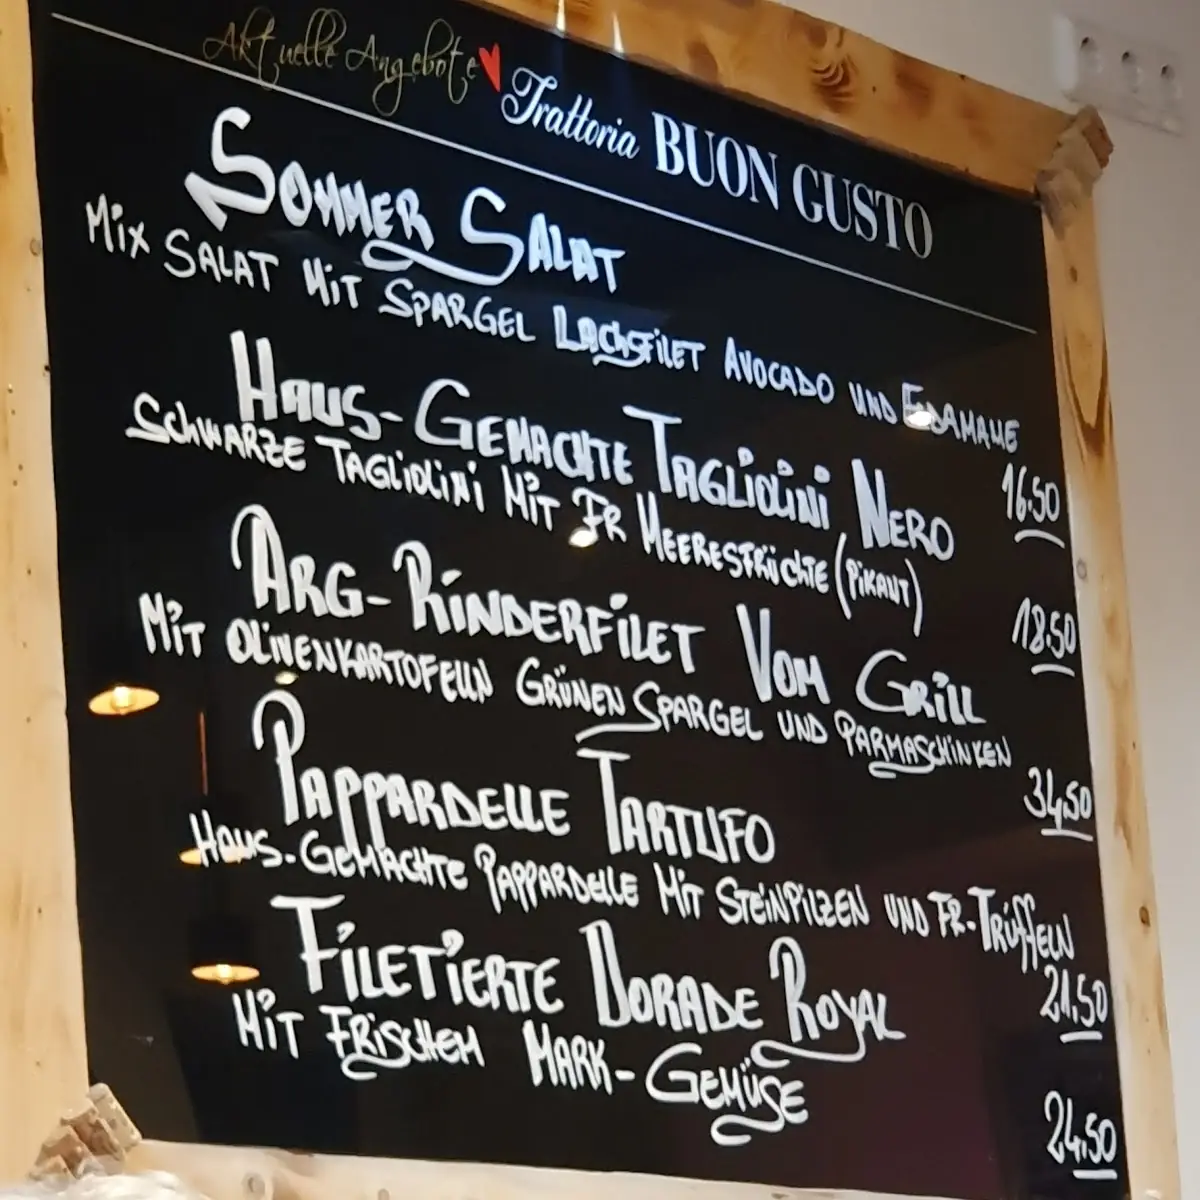 Aktuelle Angebote
Trattoria BUON GUSTO
SOMMER SALAT
MIX SALAT MIT SPARGEL LACHSFILET AVOCADO UND EDAMAME
16.50
HAUS-GEMACHTE TAGLIOLINI NERO
SCHWARZE TAGLIOLINI MIT FR MEERESFRÜCHTE (PIKANT)
18.50
ARG-RINDERFILET VOM GRILL
MIT OLIVENKARTOFELLN GRÜNEN SPARGEL UND PARMASCHINKEN
34,50
PAPPARDELLE TARTUFO
HAUS-GEMACHTE PAPPARDELLE MIT STEINPILZEN UND FR-TRÜFFELN
21,50
FILETIERTE DORADE ROYAL
MIT FRISCHEM MARK-GEMÜSE
24,50